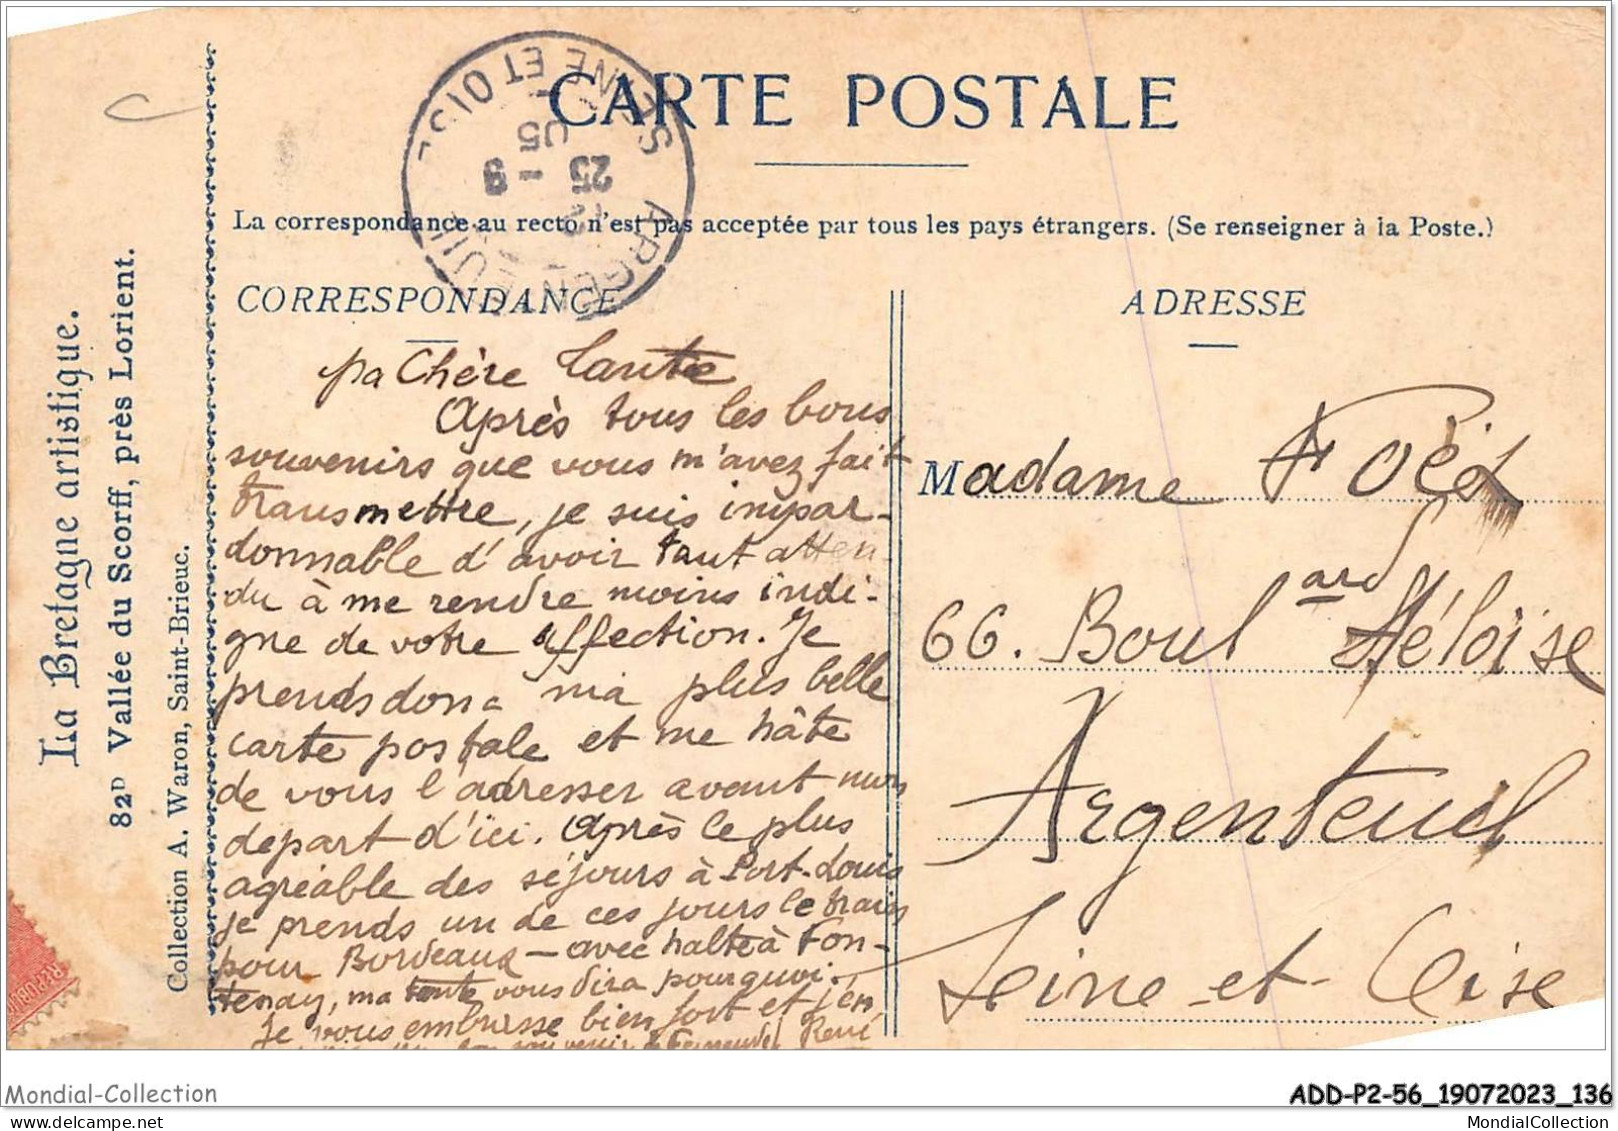 CARTE POSTALE
La correspondance au recto n'est pas acceptée par tous les pays étrangers. (Se renseigner à la Poste.)
CORRESPONDANCE
ADRESSE
La Bretagne artistique.
82D Vallée du Scorff, près Lorient.
Collection A. Waron, Saint-Brieuc.
ARGENTEUIL
SEINE ET OISE
Chère Tante
Après tous les bons
souvenirs que vous m'avez fait
transmettre, je suis impar-
donnable d'avoir tant atten-
du à me rendre moins indi-
gne de votre affection. Je
prends donc ma plus belle
carte postale et me hâte
de vous l'adresser avant mon
depart d'ici. Après le plus
agréable des séjours à Port-Louis
je prends un de ces jours le train
pour Bordeaux - avec halte à Fon-
tenay, ma tante vous dira pourquoi.
Je vous embrasse bien fort et j'en
René
Madame
66. Boulard Héloïse
Argenteuil
Seine-et-Oise
Mondial-Collection
ADD-P2-56_19072023_136
MondialCollection